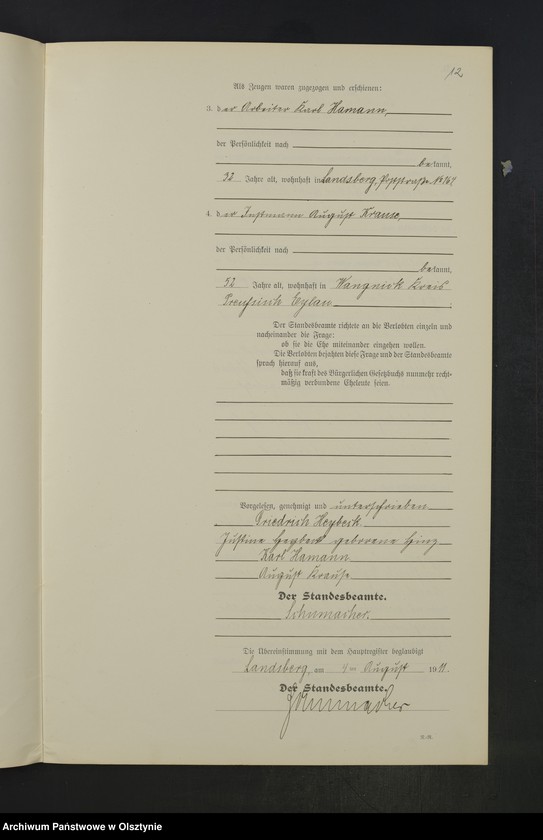 12
Als Zeugen waren zugezogen und erschienen:
3. der Arbeiter Karl Hamann,
der Persönlichkeit nach
bekannt,
32 Jahre alt, wohnhaft in Landsberg, Poststraße № 164
4. der Instmann August Krause,
der Persönlichkeit nach
bekannt,
52 Jahre alt, wohnhaft in Wangnick Kreis
Preußisch Eylau.
Der Standesbeamte richtete an die Verlobten einzeln und
nacheinander die Frage:
ob sie die Ehe miteinander eingehen wollen.
Die Verlobten bejahten diese Frage und der Standesbeamte
sprach hierauf aus,
daß sie kraft des Bürgerlichen Gesetzbuchs nunmehr recht-
mäßig verbundene Eheleute seien.
Vorgelesen, genehmigt und unterschrieben
Friedrich Heybeck
Justine Heybeck geborene
Karl Hamann
August Krause
Der Standesbeamte.
Schumacher.
Die Übereinstimmung mit dem Hauptregister beglaubigt
Landsberg, am 4 ten August 1911.
Der Standesbeamte.
Schumacher
Archiwum Państwowe w Olsztynie